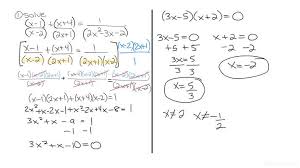 ① solve
(x-1)/(x-2) + (x+4)/(2x+1) = 1/(2x²-3x-2)
[x-1/(x-2) + (x+4)/(2x+1) = 1/(2x+1)(x-2)] (x-2)(2x+1)
(x-1)(2x+1)+(x+4)(x-2)=1
2x²+x-2x-1+x²-2x+4x-8=1
3x²+x-9=1
-1 -1
3x²+x-10=0
(3x-5)(x+2)=0
3x-5=0 x+2=0
+5 +5 -2 -2
3x/3 = 5/3 x=-2
x=5/3
x≠2 x≠-1/2